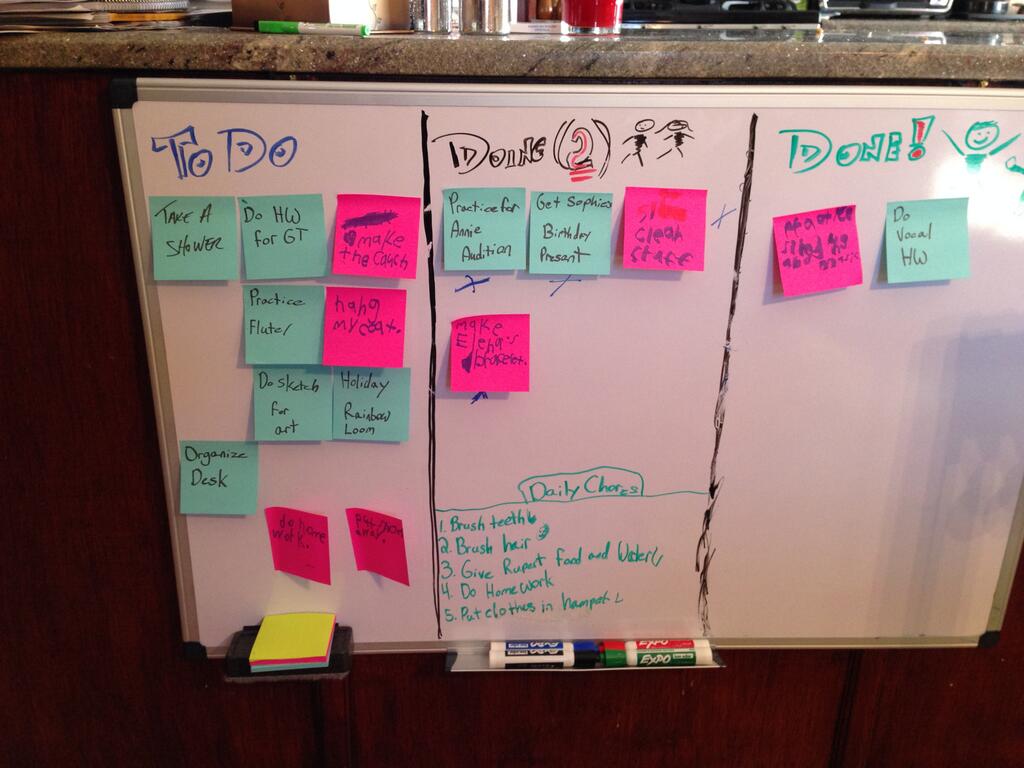 To Do
TAKE A
SHOWER
Do HW
for GT
make
the couch
Practice
Flute
hang
my coat.
Do sketch
for
art
Holiday
Rainbow
Loom
Organize
Desk
do home
work.
put
away.
Doing (2)
Practice for
Annie
Audition
Get Sophie's
Birthday
Present
clean
make
Elena's
bracelet.
Daily Chores
1. Brush teeth
2. Brush hair
3. Give Rupert food and Water
4. Do Homework
5. Put clothes in hamper
Done!
Do
Vocal
HW
EXPO
EXPO